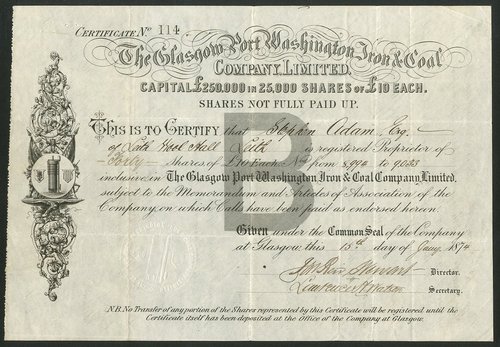 CERTIFICATE No 114
The Glasgow Port Washington Iron & Coal
COMPANY, LIMITED.
CAPITAL £250.000 IN 25,000 SHARES OF £10 EACH.
SHARES NOT FULLY PAID UP.
B
THIS IS TO CERTIFY that Stephen Adam, Esq.
of Hall Leith is registered Proprietor of
Forty Shares of £10 Each No from 8,994 to 9033
inclusive in THE GLASGOW PORT WASHINGTON IRON & COAL COMPANY, LIMITED,
subject to the Memorandum and Articles of Association of the
Company, on which Calls have been paid as endorsed hereon.
Given under the COMMON SEAL of the Company
at Glasgow, this 15th day of Jany. 1874
Stewart Director.
Secretary.
N.B. No Transfer of any portion of the Shares represented by this Certificate will be registered until the
Certificate itself has been deposited at the Office of the Company at Glasgow.